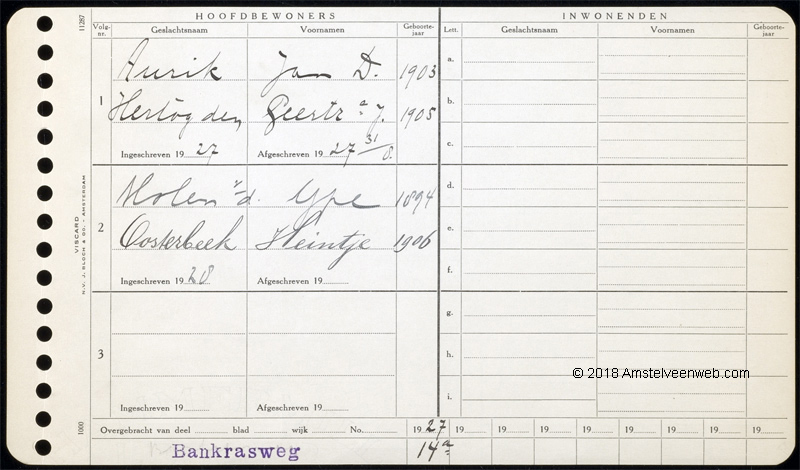 HOOFDBEWONERS INWONENDEN
Volg-nr. Geslachtsnaam Voornamen Geboorte-jaar Lett. Geslachtsnaam Voornamen Geboorte-jaar
11287
Aurik Jan D. 1903 a.
1 b.
Hertog den Geertr a J. 1905
c.
Ingeschreven 19 27 Afgeschreven 19 27 31/8.
Molen v d. Ype 1894 d.
2 e.
Oosterbeek Heintje 1906
f.
Ingeschreven 19 28 Afgeschreven 19
VISCARD
N.V. J. BLOCH & CO. - AMSTERDAM
g.
3 h.
© 2018 Amstelveenweb.com
i.
Ingeschreven 19 Afgeschreven 19
1000
Overgebracht van deel blad wijk No. 19 27 19 19 19 19 19 19 19 19
Bankrasweg 14a